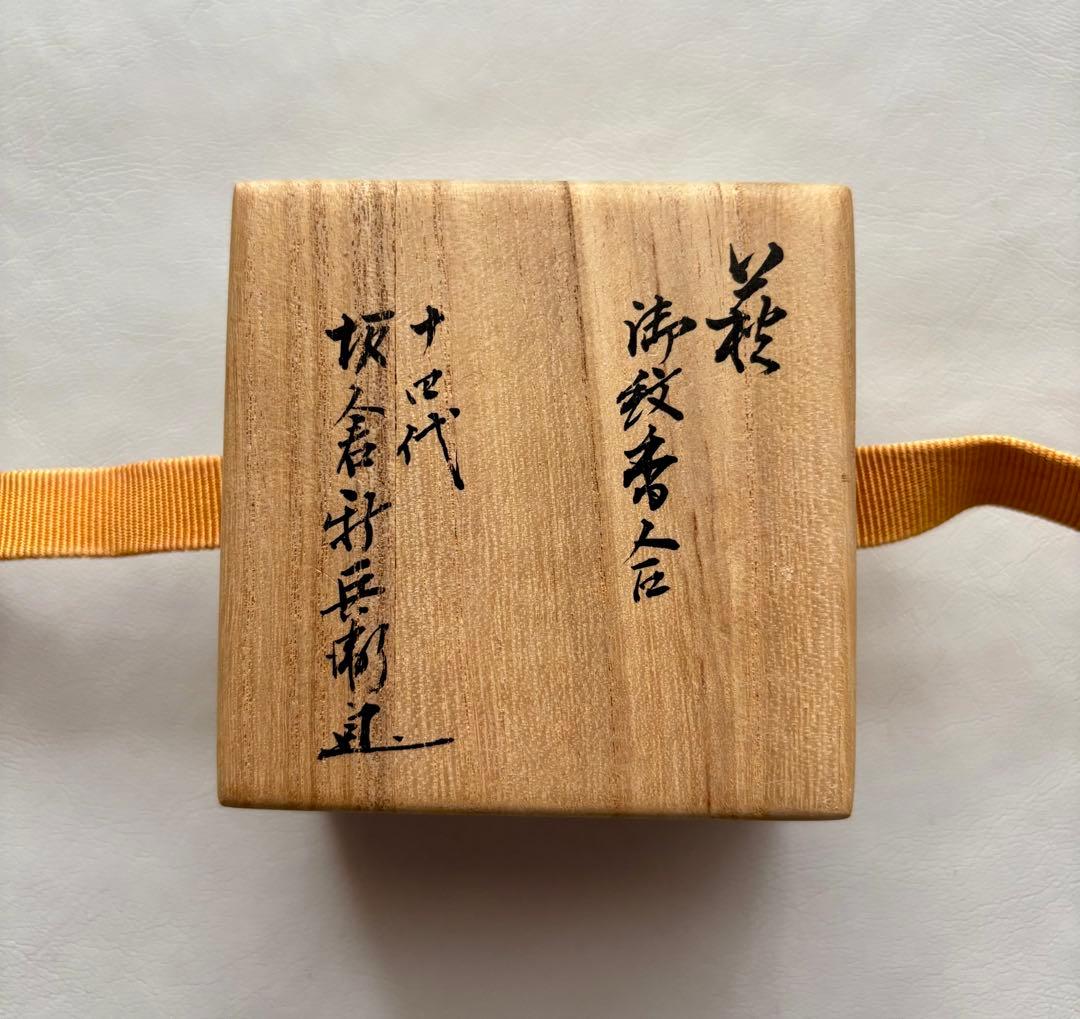 萩
御紋香合
十四代
坂倉新兵衛造